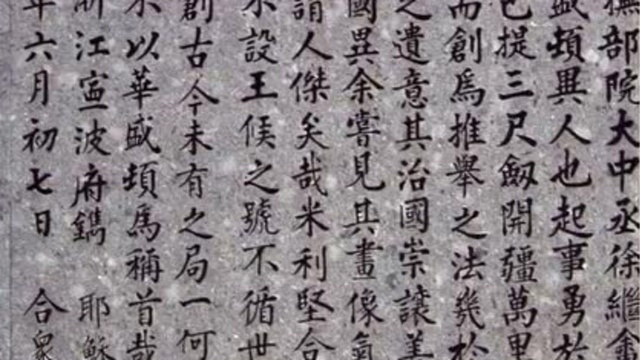 撫部院大中丞徐繼畬
盛頓異人也起事勇於
已提三尺劔開疆萬里
而創爲推舉之法幾於
之遺意其治國崇讓善
國異余嘗見其畫像氣
謂人傑矣哉米利堅合
不設王候之號不循世
創古今未有之局一何
不以華盛頓爲稱首哉
浙江寧波府鐫 耶穌
年六月初七日 合衆